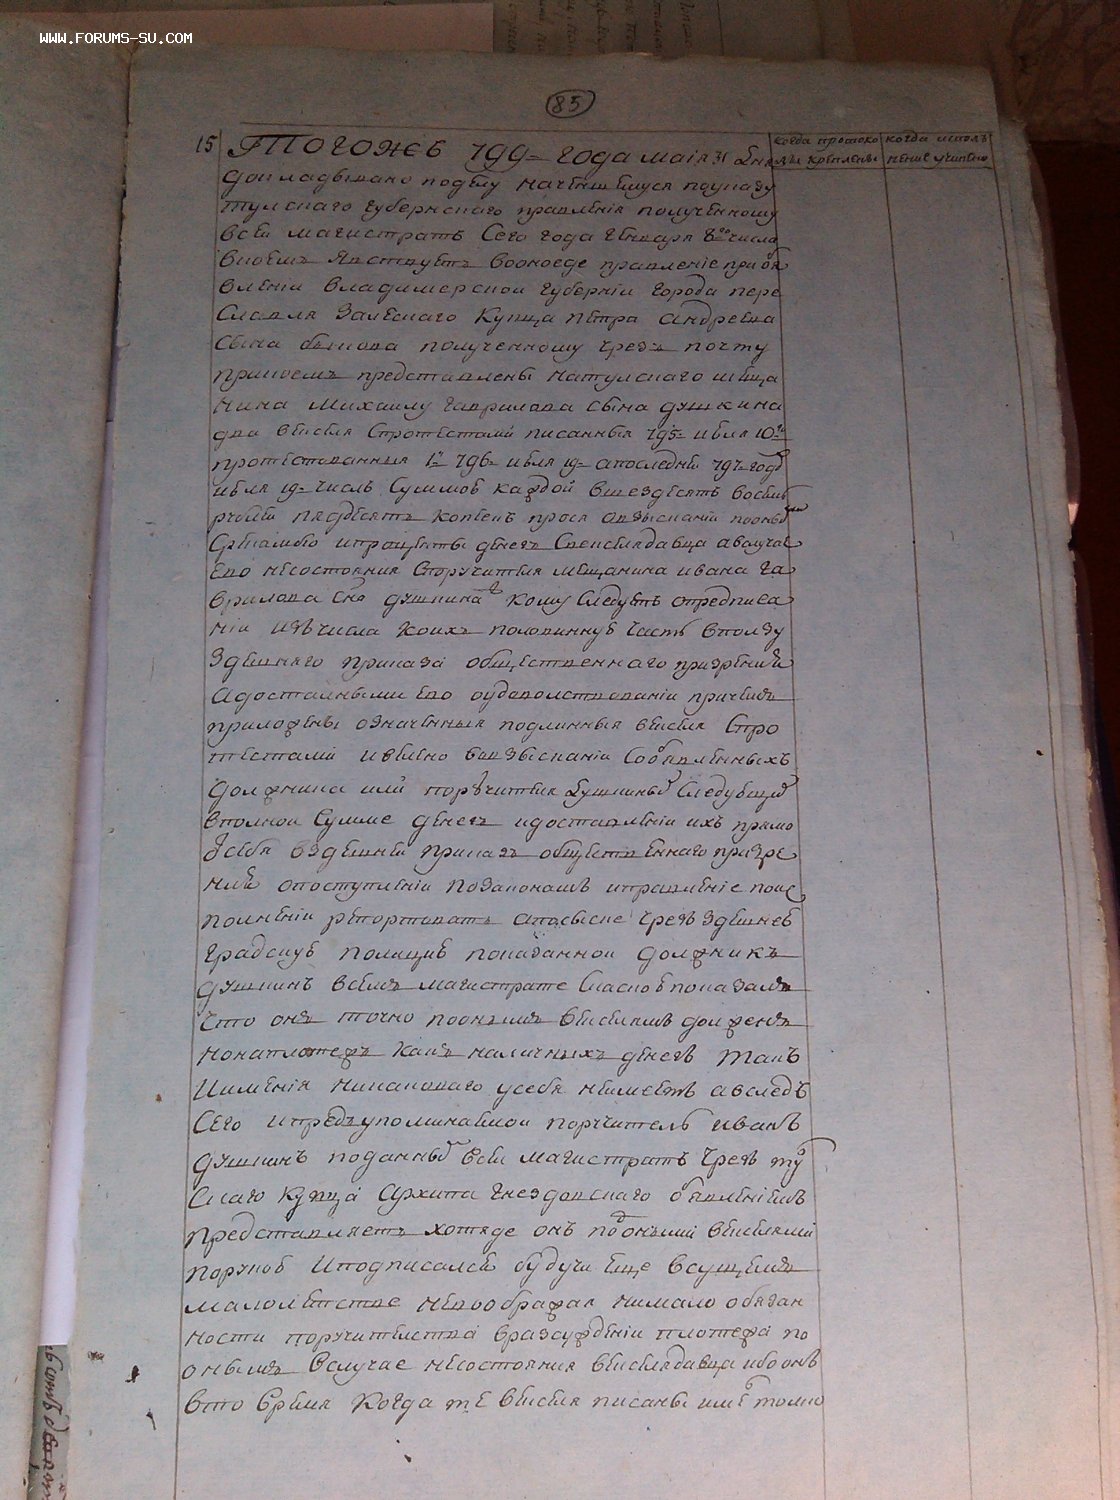 WWW.FORUMS-SU.COM
85
15 Тогожъ 799 года маія 31 дня
когда протоко когда исполъ
лы крѣплены нение учинено
докладывано поделу начевшемуся поуказу
тулскаго губернскаго правленія полученному
всеи магистратъ Сего года генваря числа
вкоемъ явствуетъ воономде правленіе приоб
явленіи владимерскои губерніи города пере
Славля Залескаго купца петра андреева
Сына быкова полученному чрезъ почту
прикоемъ представлены натулскаго меща
нина Михаилу гаврилова сына душкина
два векселя Спротестами писанныя 795 июля 10
протестованныя 1 796 июля 19 апоследней 797 году
июля 19 числъ Суммою каждой вшездесятъ восемь
рублей пядесятъ копеекъ прося овзысканіи поонымъ
ипроценты денегъ Свекселядавца авслучае
ево несостояния Споручителя мещанина ивана га
врилова сна душкина кому Следуетъ опредписа
ніи изъчисла коихъ половинную часть вползу
здешняго приказа общественнаго призрения
адосталными ево оудоволствованіи причемъ
приложены означенныя подлинныя векселя Спро
тестами ивелено овзысканіи Собъявленныхъ
должника или поручителя душкиныхъ Следующей
вполнои Сумме денегъ идоставленіи ихъ прямо
отсебя вздешней приказъ общественнаго призре
ния опоступленіи позаконамъ иправленіе поис
полненіи репортовать апосыске чрезъ здешнею
градскую полицию показаннои должникъ
душкинъ всемъ магистрате Скаскою показалъ
что онъ точно поонымъ векселямъ долженъ
нонаплатежъ какъ наличныхъ денегъ такъ
иимения никаковаго усебя неимеетъ авследъ
Сего ипредъупоминаемои поручитель иванъ
душкинъ поданнымъ всеи магистратъ чрезъ ту
Скаго купца Архипа гнездовскаго объявленіемъ
представляетъ хотяде онъ пооными векселями
порукою иподписался будучи еще всущемъ
малолетстве невоображая нимало обязан
ности поручителства вразсужденіи платежа по
онымъ вслучае несостояния векселядавца ибо онъ
вто время когда те векселя писаны имел толко